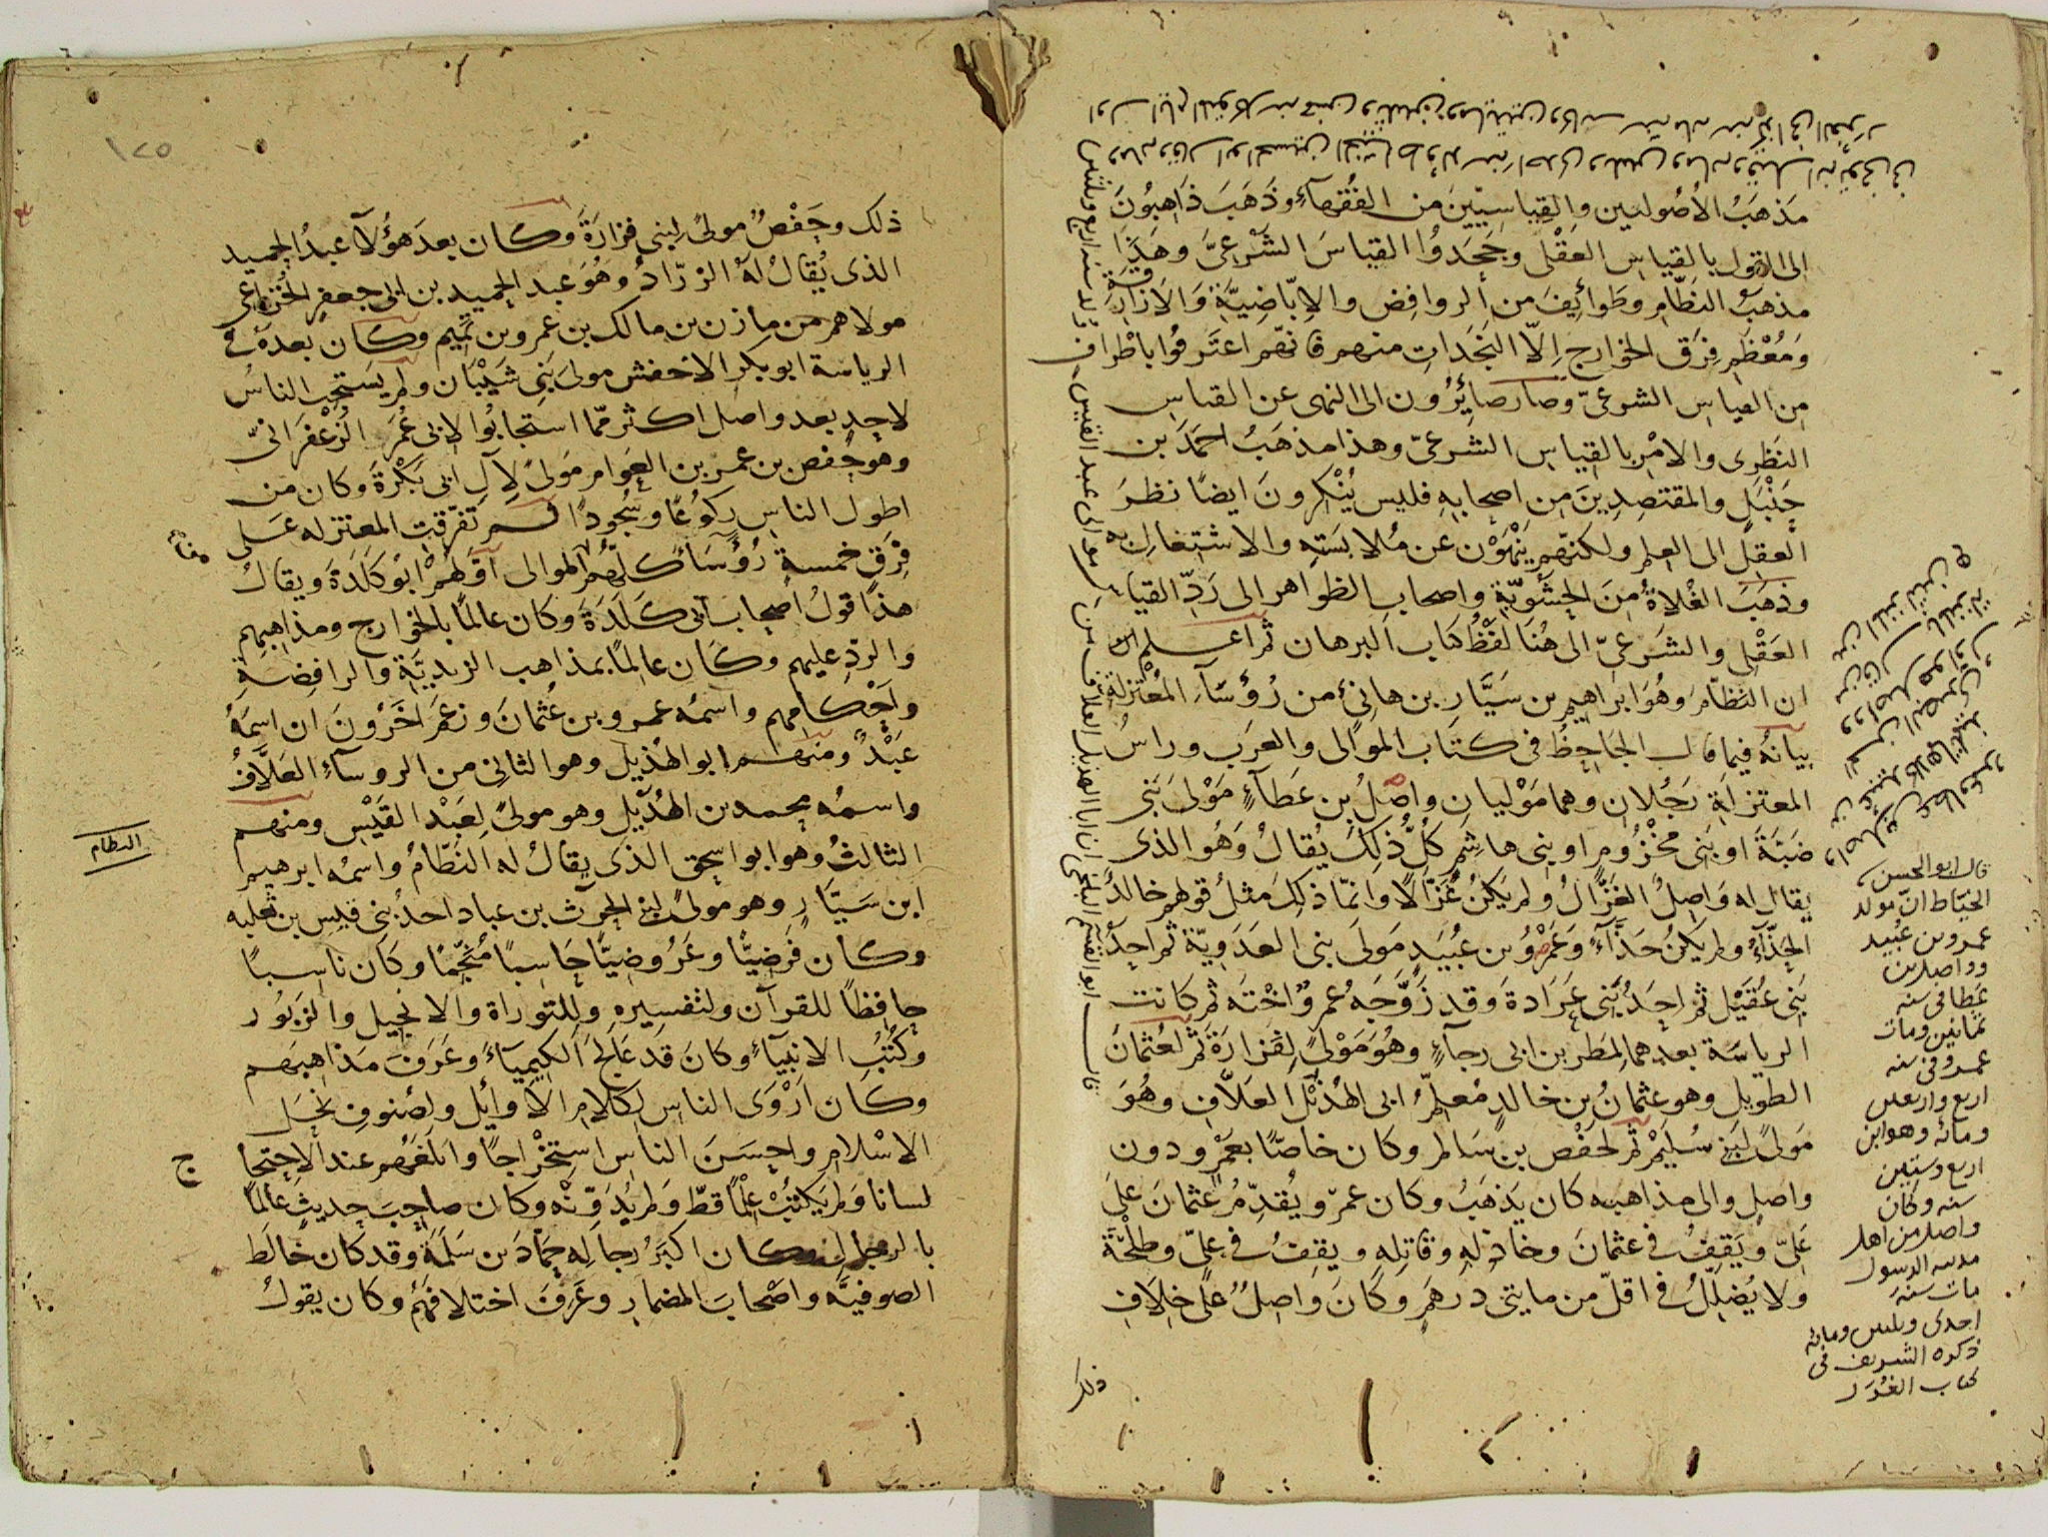 مَذهَبُ الأُصُوليين والقِياسِيّينَ من الفُقَهآءِ وَذَهَبَ ذَاهِبُونَ
الى القول بالقياسِ العَقْلى وجَحَدُوا القياسَ الشَرْعِىَّ وهَذا
مذهبُ النظّامِ وطَوائِفَ من الروافِض والاِبّاضِيَّةِ وَالازارِقَةِ
وَمُعْظَمِ فِرَق الخوارج اِلّا النَجَداتِ منهم فانّهم اعتَرفُوا باطْرافٍ
من القياسِ الشرعىّ وصارَ صائِرُون الى النهى عن القياسِ
النَظَرِى والامْرِ بالقياسِ الشرعىّ وهذا مذهَبُ احمَدَ بن
حَنْبَلٍ والمقتصِدِينَ من اصحابِهِ فليس يُنْكِرونَ ايضًا نظرَ
العقلِ الى العلمِ ولكنّهم يَنْهَوْن عن مُلابَسَتِهِ والاشتغالِ به
وذهَبَ الغُلاةُ منَ الحَشْوِيّةِ واصحابِ الظواهر الى رَدِّ القياسِ
العَقْلى والشَرعىّ الى هُنا لفْظُ كتاب البرهان ثم اعلم
ان النظّامَ وهُوَ ابراهيم بن سَيَّارِ بن هانِئ من رُؤَسآءِ المُعْتزلةِ
بيانُهُ فيما قال الجاحِظُ فى كتاب الموالى والعرَب وراسُ
المعتزلةِ رَجُلانِ وهما مَوْليانِ واصِلُ بن عَطآءٍ مَوْلى بَنى
ضَبَّةَ او بَنِى مخْزُومٍ او بنى هاشِمٍ كلُّ ذلِكَ يُقالُ وَهُوَ الذى
يقال له وَاصِلُ الغَزَّالُ ولم يَكنْ غَزّالًا وانمّا ذلِكَ مثلُ قولهم خالدٌ
الحذّآءُ ولم يَكُنْ حَذَّآءً وَعَمْرُو بن عُبَيدٍ مَولى بنى العَدَويّةِ ثم احدُ
بَنِى عُقَيْلٍ ثم احَدُ بَنى عَرَادةَ وَقد زَوَّجَهُ عمرو اخْتَه ثم كانت
الرياسَة بعدهما لِمَطَرِ بن ابى رجآءٍ وهُوَ مَوْلىً لِفَزارَةَ ثم لعُثمانَ
الطويل وهو عثمانُ بن خالدٍ مُعلِّمُ ابى الهُذيْلِ العَلّافِ وهُوَ
مَولىً لِبَنِى سُلَيْمٍ ثم لِحَفْصِ بن سَالمٍ وكان خاصّا بعَمْرٍو دون
واصلٍ والى مذاهبِه كان يَذهَبُ وكان عمرٌو يُقدِّمُ عُثمانَ علىَ
عَلِىّ ويَقِفُ فى عثمانَ وخاذلِهِ وقاتِلِهِ ويقِفُ فى علىّ وطلحَةَ
ولا يُضَلِّلُ فى اقلّ من مايتى درهَمٍ وَكَانَ وَاصِلٌ علىَ خِلافِ
ذلك
قال ابو الحسن
الخيّاط انّ مولد
عمرو بن عُبيد
وواصل بن
عطا فى سنه
ثمانين ومات
عمرو فى سنه
اربع واربعين
ومائه وهو ابن
اربع وستين
سنه وكان
واصل من اهل
مدينه الرسول
مات سَنهَ
احدى وثلثين ومائه
ذكره الشريف فى
كتاب الغُرَر
ذلك وحَفْصٌ مولىً لِبنى فَزارَةَ وكان بعدَ هَؤُلآ عبدُ الحميد
الذى يُقالُ لهُ الزرّادُ وهُوَ عبد الحميدِ بن ابى جعفرٍ الخزاعى
مولاهم من مازن بن مالك بن عمرو بن تميمٍ وكان بعده فى
الرياسَة ابو بكر الاخفش مولى بَنى شَيْبان ولم يَستجِب الناسُ
لاحدٍ بعد واصل اكثر ممّا استجابُوا لابى عُمَر الزعْفَرانىّ
وهو حفص بن عمر بن العوام مَولىً لآلِ ابى بَكْرَةَ وكان من
اطول الناسِ ركوُعًا وسُجُودًا ثم تفرّقت المعتزله عَلى
فِرَقٍ خمسةٍ رُؤَسَآ كلّهم الموالى اوّلهُمْ ابُو كَلَدَةَ ويقالُ
هذا قولُ اصحابِ ابى كَلَدَةَ وكان عالمًا بالخَوارج ومذاهِبِهِم
والردِّ عليهِم وكَان عالِمًا بمذاهب الزيديَّةِ والرافِضَةِ
واحْكامِهِم واسمُه عمرو بن عُثمانَ وزعَمَ آخَرُونَ ان اسمَهُ
عَبْدٌ ومنهم ابو الهُذيل وهو الثانِى من الروسآءِ العَلّافُ
واسمُه محمد بن الهُذَيلِ وهو مولىً لِعَبْد القَيْسِ ومنهم
الثالثُ وهو ابو اسحق الذى يقالُ له النَّظّامُ واسمُه ابرهيم
ابن سَيّارٍ وهو مولىً لبنى الحرث بن عباد احدُ بنى قيسِ بن ثعلبه
وكان فَرَضِيًّا وعَرُوضِيًّا حَاسِبًا مُنَجِّمًا وكان ناسِبًا
حافِظًا للقرآن ولتفسيرِهِ ولِلتوراةِ والانجيل والزبُور
وكُتُبِ الانبيآءِ وكانَ قد عَالجَ الكِيميآءَ وعَرَفَ مَذاهِبَهم
وكان اَرْوَى الناسِ لِكلامِ الاوايِل ولِصُنوفِ نِحَل
الاسْلامِ واحسَنَ الناسِ استِخْراجًا وابلَغَهُم عند الاحتجاج
لسانا وَلم يَكتُبْ عِلْمًا قطّ وَلم يُدَوِّنْه وكان صاحبَ حديثٍ عالمًا
بالرجال وكان اكبَرُ رجالِهِ حَمّادَ بن سَلَمَةَ وقد كان خالَطَ
الصوفيَّهَ واصْحابَ المضمار وعَرَفَ اختلافهُم وكان يقولُ
النظام